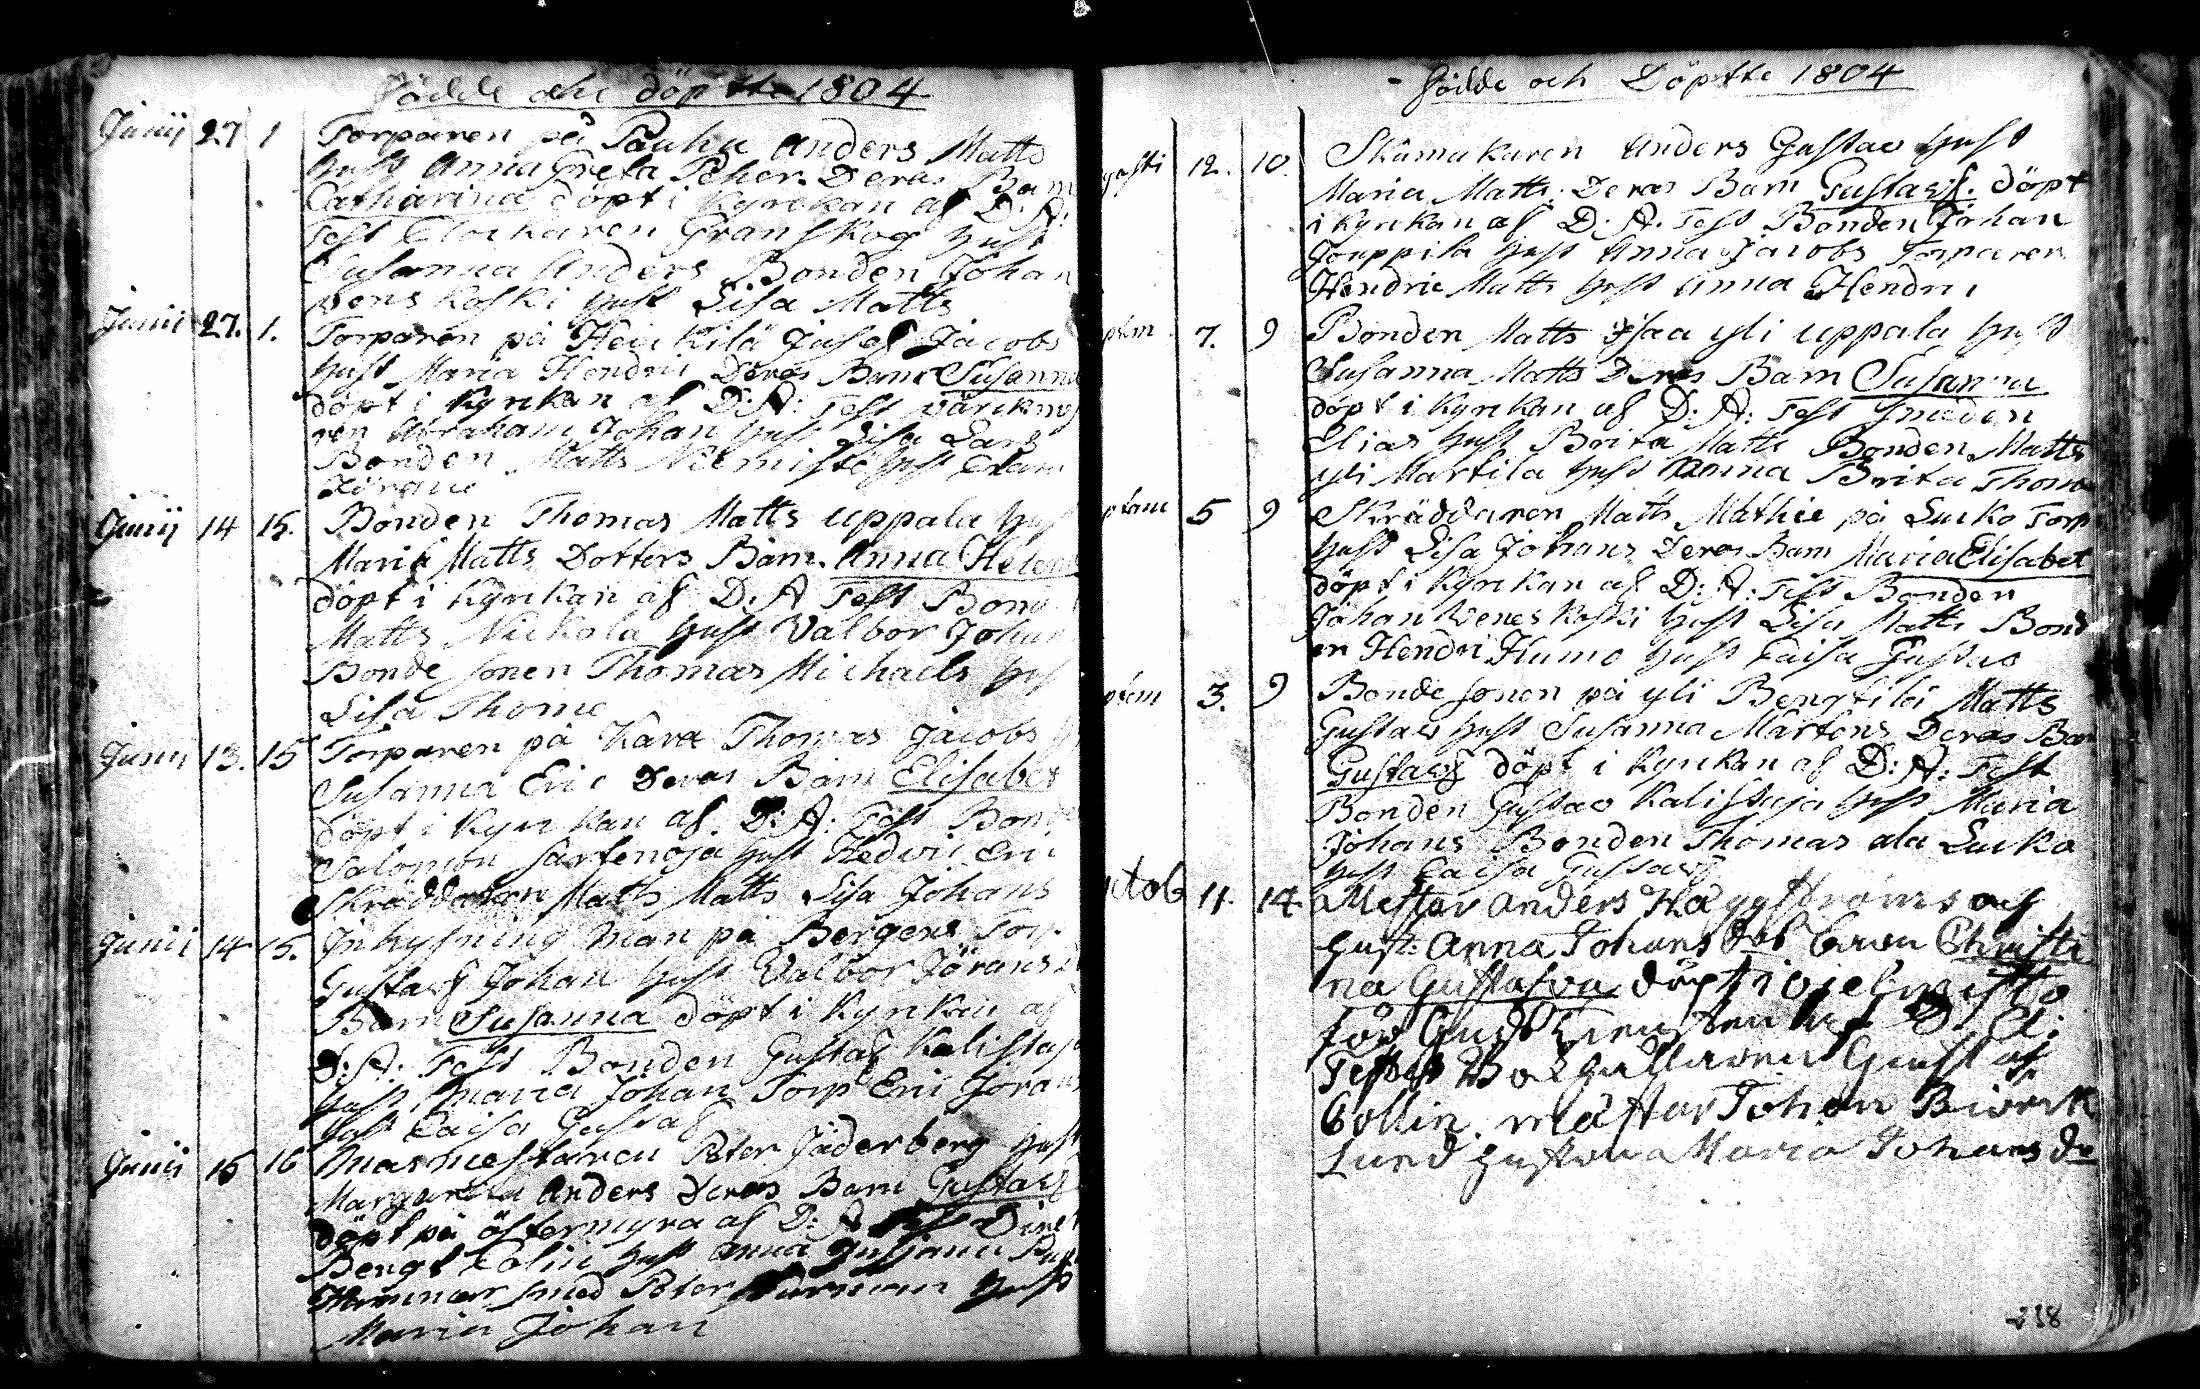 Födde och döptte 1804
Junij 27 1 Torparen på Pauhu Anders Matts
hust Anna Greta Peher. Deras Barn
Catharina döpt i Kyrckan af D: A:
Test Clockaren Granskog hust
Susanna Anders Bonden Johan
venes koski hust Lisa Matts
Junii 27. 1. Torparen på Heickilä Josef Jacobs
hust Maria Hendric Deras Barn Susanna
döpt i Kyrckan af D: A: Test
ren Abraham Johan hust Lisa Lars
Bonden Matts Niemistö hust
Jörans
Junij 14 15. Bonden Thomas Matts uppala hust
Maria Matts Dotters Barn. Anna Helen
döpt i Kyrckan af D: A Test Bond
Matts Nickola hust Valbor Johan
Bonde sonen Thomas Michaels hust
Lisa Thome
Junii 13. 15 Torparen på Kara Thomas Jacobs
Susanna Eric Deras Barn Elisabet
döpt i Kyrckan af D: A: Test Bond
Salomon Sartenoja hust Hedvic Eric
Skräddaren Matts Matts Lisa Johans
Junii 14 15. Inhysning Man på Bergens Torp
Gustaf Johan hust Valbor Jörans
Barn Susanna döpt i Kyrckan af
D: A: Test Bonden Gustaf Kalistaja
hust Maria Johan Torp Eric Jöran
hust Caisa Gustaf
Junii 15 16 Masmestaren Peter Säderberg hust
Margareta Anders Deras Barn Gustaf
döpt på östermyra af D: A Test Direct
Bengt Colin hust Anna
Hammar smed Peter hust
Maria Johan
- Födde och Döptte 1804
gusti 12. 10. Skomakaren Anders Gustav hust
Maria Matts. Deras Barn Gustaf. döpt
i Kyrckan af D: A. Test Bonden Johan
Jouppila hust Anna Jacobs Torparen
Hendric Matts hust Anna Hendric
ptem 7. 9 Bonden Matts Isaa yli uppala hust
Susanna Matts Deras Barn Susanna
döpt i Kyrckan af D: A: Test Smeden
Elias hust Brita Matts Bonden Matts
yli Martila hust Anna Brita Thom
ptem 5 9 Skräddaren Matts Mathie på Lucko Torp
hust Lisa Johans Deras Barn Maria Elisabet
döpt i Kyrckan af D: A: Test Bonden
Johan Venes koski hust Lisa Matts Bond
en Hendric Humo hust Caisa Gustav
ptem 3. 9 Bonde sonen på yli Bengtilä Matts
Gustav hust Susanna Mårtens Deras Barn
Gustaf döpt i Kyrckan af D: A: Test
Bonden Gustav Kalistaja hust Maria
Johans Bonden Thomas ala Lucko
hust Caisa Gustaf
ctob 11. 14. Mestar Anders Häggströms och
hust: Anna Johans dot barn Christi
na Gustafva döpt i
för Gudstiensten af D. El:
Testes Bokhållaren Gustaf
Collin. Mästar Johan Biörk
Lund hustrun Maria Johans do
238